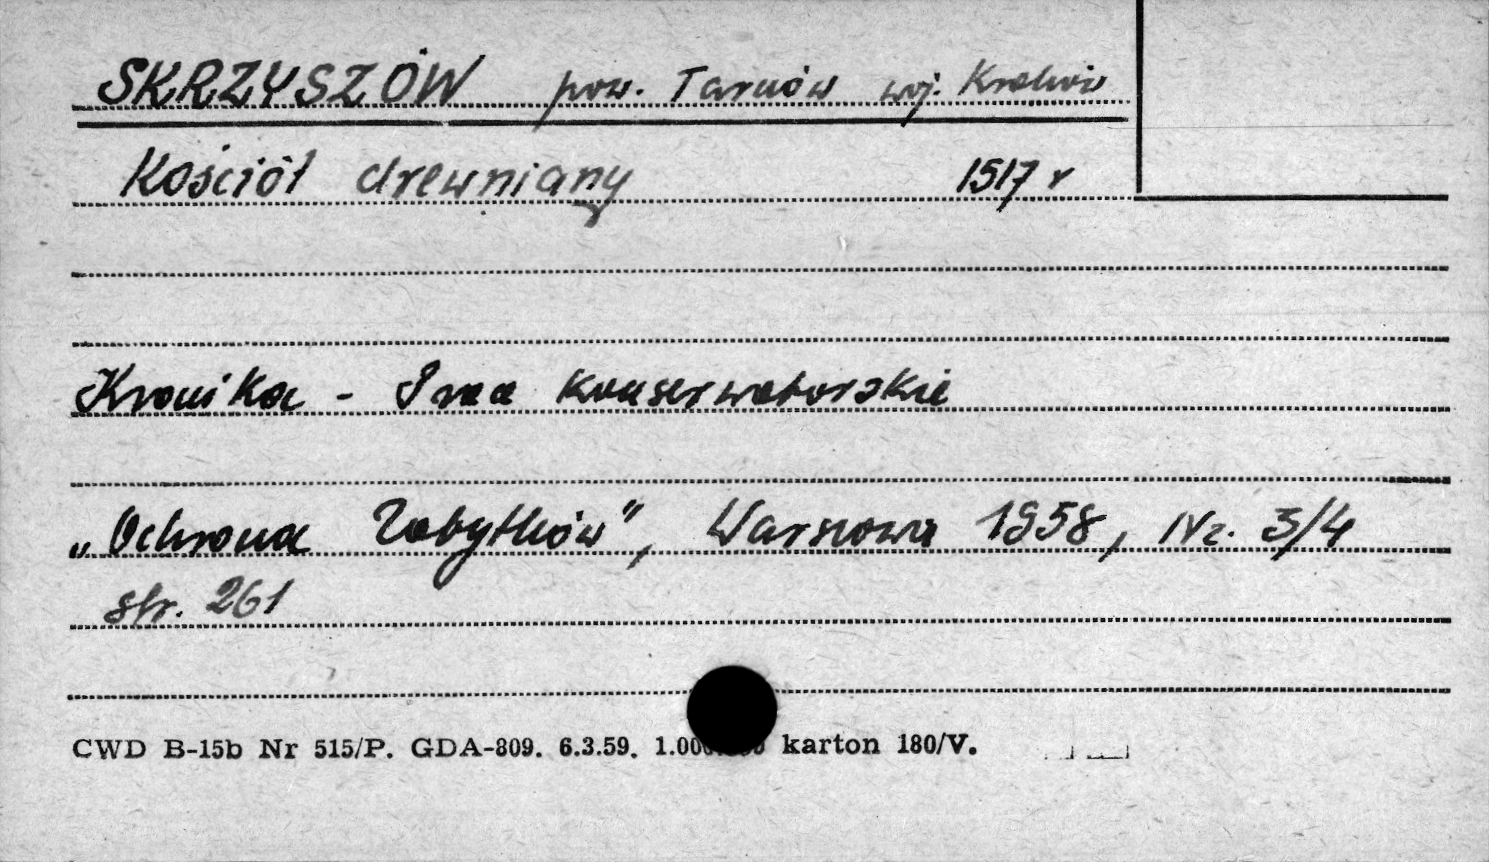 SKRZYSZÓW pow. Tarnów woj. Kraków
Kościół drewniany 1517 r
Kronika - Prace konserwatorskie
„Ochrona Zabytków”, Warszawa 1958, Nr. 3/4
str. 261
CWD B-15b Nr 515/P. GDA-809. 6.3.59. karton 180/V.